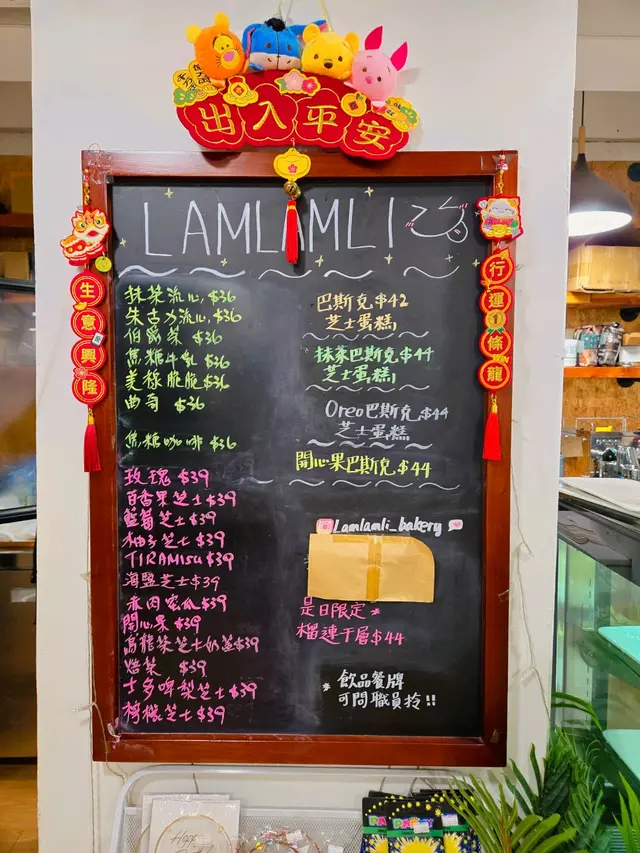 出入平安
LAMLAMLI
生意興隆
行運1條龍
抹茶流心 $36
朱古力流心 $36
伯爵茶 $36
焦糖牛乳 $36
美祿脆脆 $36
曲奇 $36
焦糖咖啡 $36
玫瑰 $39
百香果芝士 $39
藍莓芝士 $39
柚子芝士 $39
TIRAMISU $39
海鹽芝士 $39
赤肉蜜瓜 $39
開心果 $39
烏龍茶芝士奶蓋 $39
焙茶 $39
士多啤梨芝士 $39
檸檬芝士 $39
巴斯克 $42
芝士蛋糕
抹茶巴斯克 $44
芝士蛋糕
Oreo巴斯克 $44
芝士蛋糕
開心果巴斯克 $44
Lamlamli_bakery
是日限定
榴連千層 $44
* 飲品餐牌
可問職員拎!!